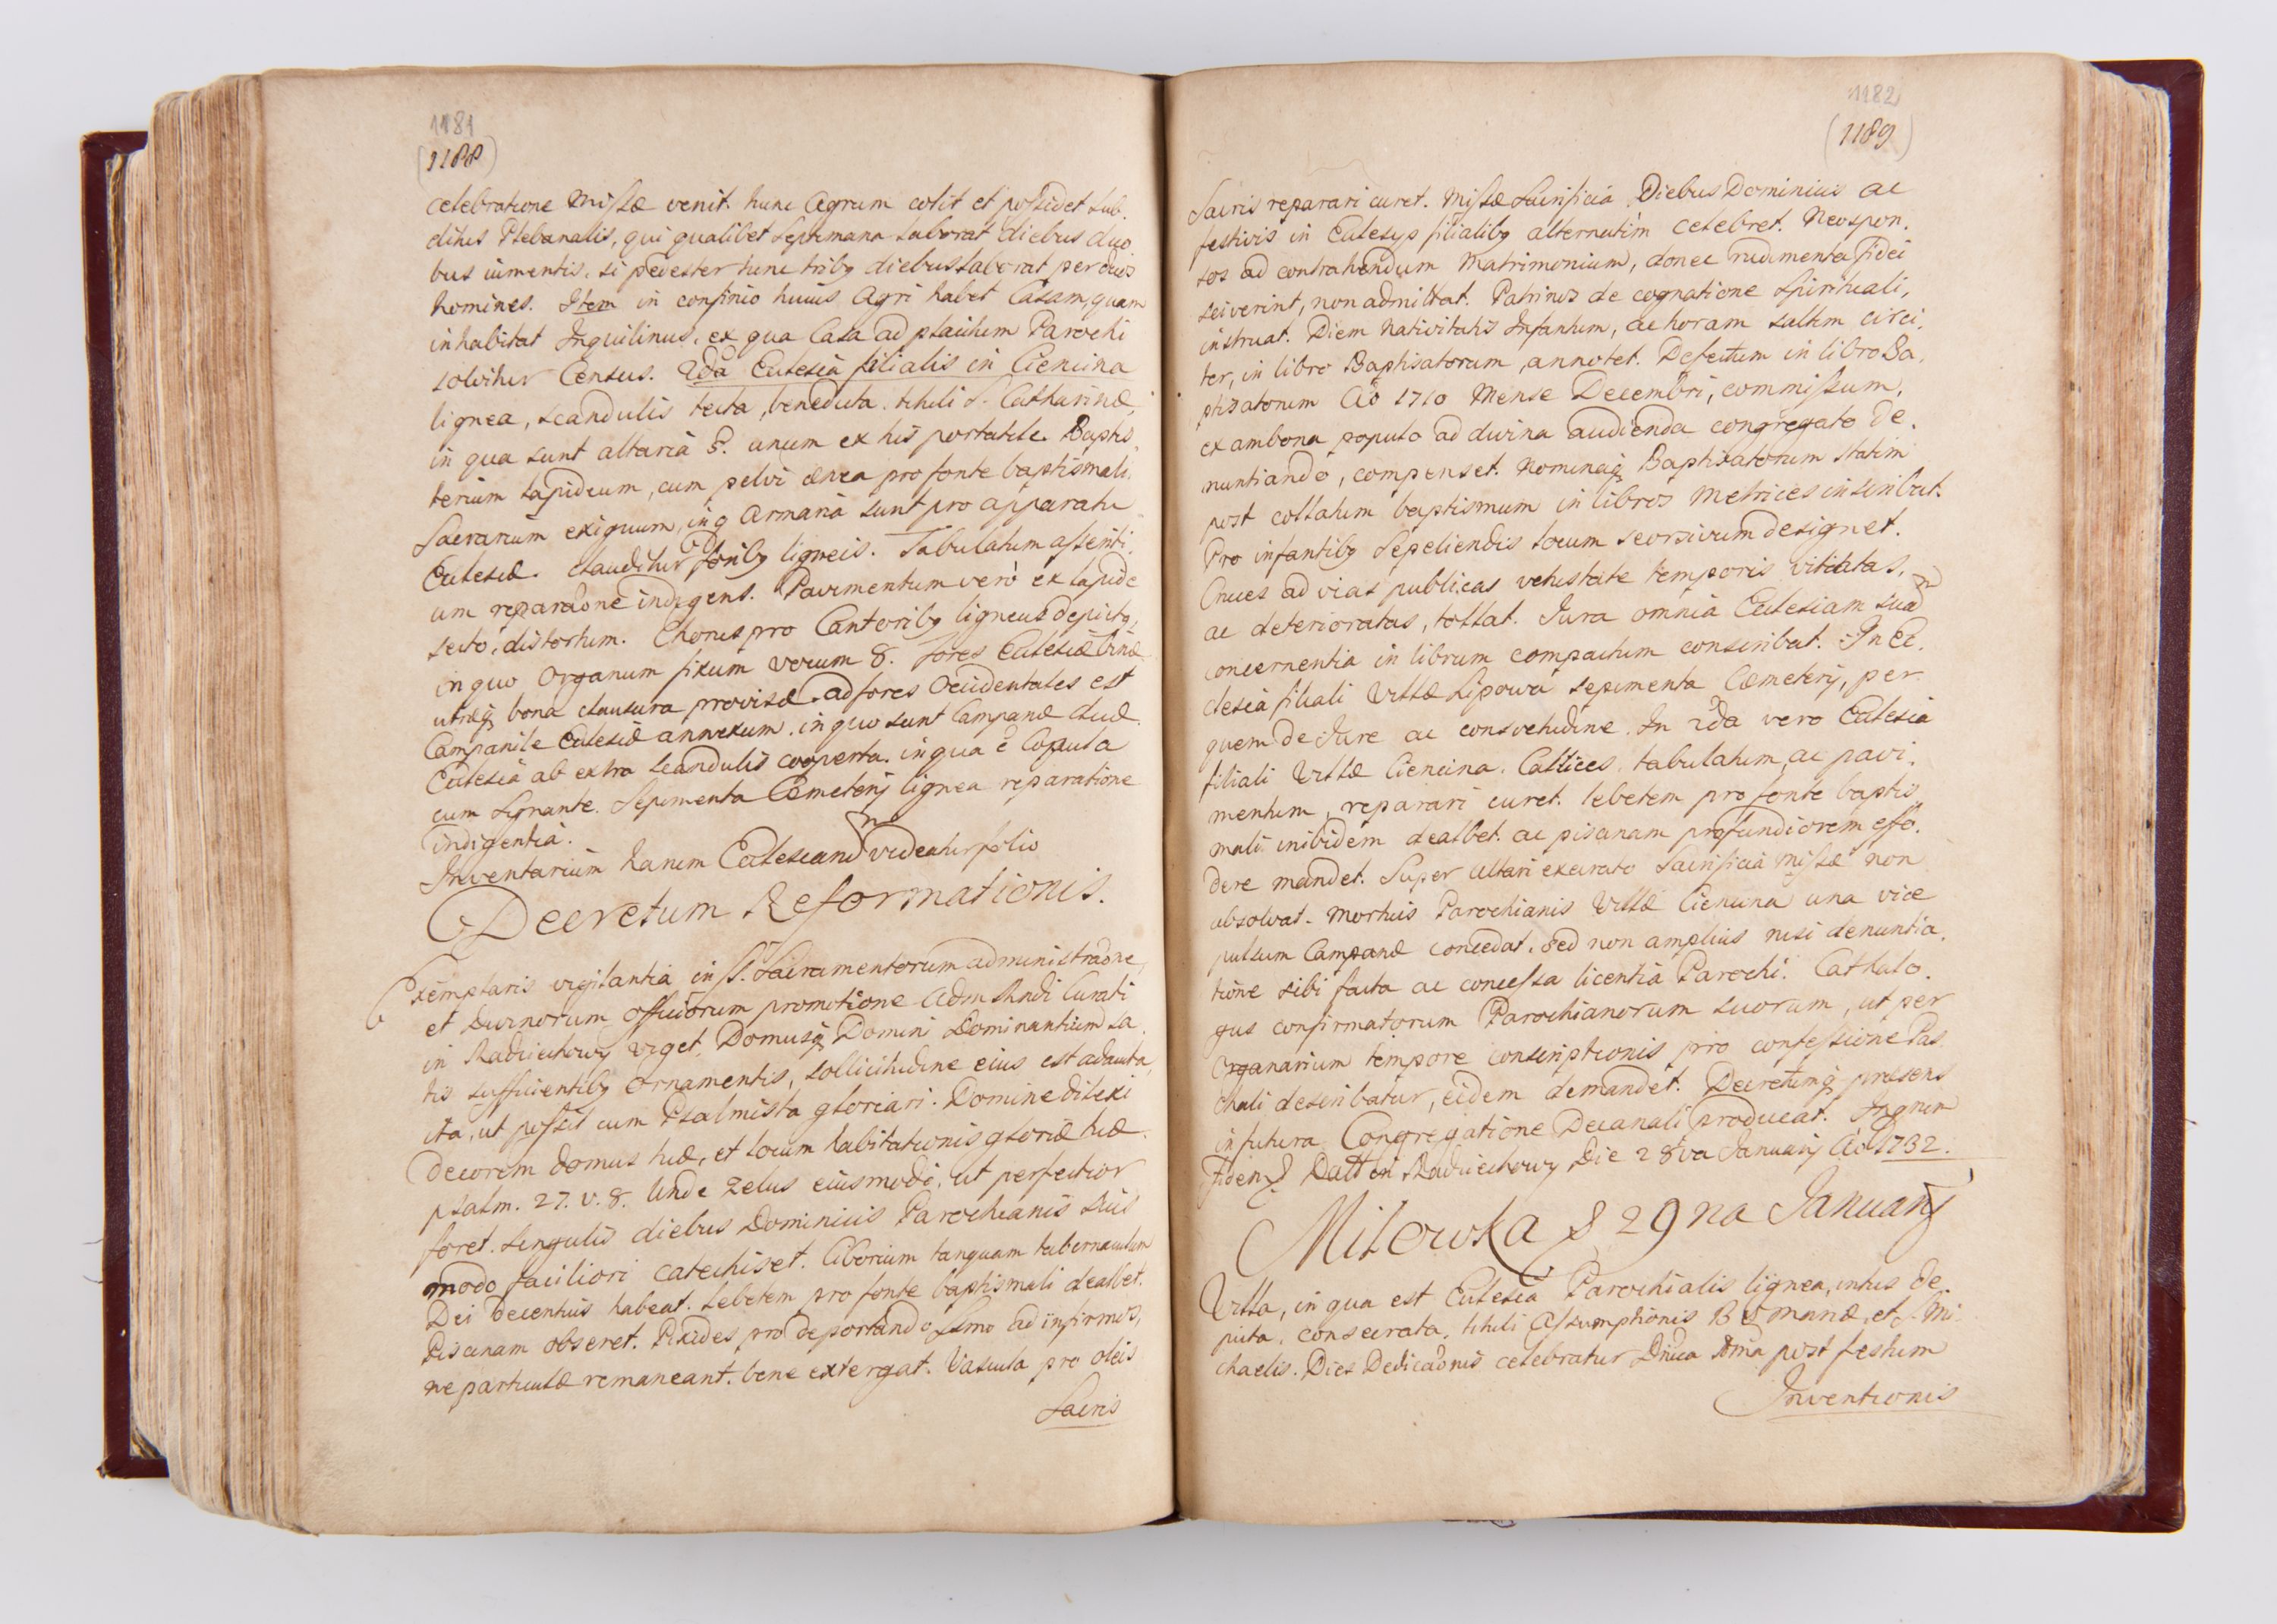 1181
(1188)
celebratione Missæ venit. hunc Agrum colit et possidet sub.
ditus Plebanalis, qui qualibet septimana laborat diebus duo
bus iumentis, si pedester tunc tribq diebus laborat per duos
homines. Item in confinio huius Agri habet Casam, quam
inhabitat Inquilinus, ex qua Casa ad placitum Parochi
solvitur Census. 2da Ecclesia filialis in Ciencina
lignea, scandulis tecta, benedicta. tituli S. Catharinæ,
in qua sunt altaria 5. unum ex his portatile. Baptis,
terium lapideum, cum pelvi ænea pro fonte baptismali.
Sacrarium exiguum, in q Armaria sunt pro apparatu
Ecclesiæ. clauditur foribq ligneis. Tabulatum assenti,
um reparaône indigens. Pavimentum verò ex lapide
secto, distortum. Chorus pro Cantoribq ligneus depictq,
in quo Organum fixum vocum 8. fores Ecclesiæ binæ
utræq bona clausura provisæ. ad fores Occidentales est
Campanile Ecclesiæ annexum. in quo sunt Campanæ duæ.
Ecclesia ab extra scandulis cooperta. in qua ê Copula
cum Signante. Sepimenta Cæmeterij lignea reparatione
indigentia.
Inventarium harum Ecclesiarum videatur folio
Decretum Reformationis.
Exemplaris vigilantia in SS. Sacramentorum administraône,
et Divinorum officiorum promotione Adm Rndi Curati
in Radziechowy viget, Domusq Domini Dominantium sa.
tis sufficientibq ornamentis, sollicitudine eius est adaucta,
ita, ut possit cum Psalmista gloriari. Domine dilexi
decorem domus tuæ, et locum habitationis gloriæ tuæ.
psalm. 27. v. 8. Unde zelus eiusmodi, ut perfectior
foret. singulis diebus Dominicis Parochianis suis
modo faciliori catechiset. Ciborium tanquam tabernaculum
Dei decentius habeat. Lebetem pro fonte baptismali dealbet.
Piscinam obseret. Pixides pro deportando SSmo ad infirmos,
ne particulæ remaneant. bene extergat. Vascula pro oleis
Sacris
1182
(1189)
Sacris reparari curet. Missæ Sacrificia Diebus Dominicis ac
festivis in Ecclesijs filialibq alternatim celebret. Neospon.
sos ad contrahendum Matrimonium, donec rudimenta fidei
sciverint, non admittat. Patrinos de cognatione Spirituali,
instruat. Diem Nativitatis Infantum, ac horam saltem circi,
ter, in libro Baptisatorum, annotet. Defectum in libro Ba,
ptisatorum Aô 1710 Mense Decembri, commissum,
ex ambona populo ad divina audienda congregato de.
nuntiando, compenset. Nominaq Baptisatorum statim
post collatum baptismum in libros Metrices inscribat.
Pro infantibq Sepeliendis locum seorsivum designet.
Cruces ad vias publicas vetustate temporis vitiatas,
ac deterioratas, tollat. Iura omnia Ecclesiam suam
concernentia in librum compactum conscribat. In Ec.
clesia filiali Villæ Lipowa sepimenta Cæmeterij, per
quem de Iure ac consvetudine. In 2da vero Ecclesia
filiali Villæ Ciencina. Callices, tabulatum, ac pavi.
mentum, reparari curet. lebetem pro fonte baptis,
mali inibidem dealbet. ac piscinam profundiorem effo.
dere mandet. Super altari execrato Sacrificia Missæ non
absolvat. Mortuis Parochianis Villæ Ciencina una vice
pulsum Campanæ concedat. sed non amplius nisi denuntia.
tione sibi facta ac concessa licentia Parochi. Cathalo.
gus confirmatorum Parochianorum suorum, ut per
Organarium tempore conscriptionis pro confessione Pas.
chali describatur, eidem demandet. Decretumq præsens
in futura Congregatione Decanali producat. In quor
fidem Datt in Radziechowy Die 28va Januarij Aô 1732.
Milowka 29na Januarij
Villa, in qua est Ecclesia Parochialis lignea, intus de.
picta, consecrata, tituli Assumptionis B V Mariæ, et S. Mi
chaelis. Dies Dedicaônis celebratur Dnica ima post festum
Inventionis